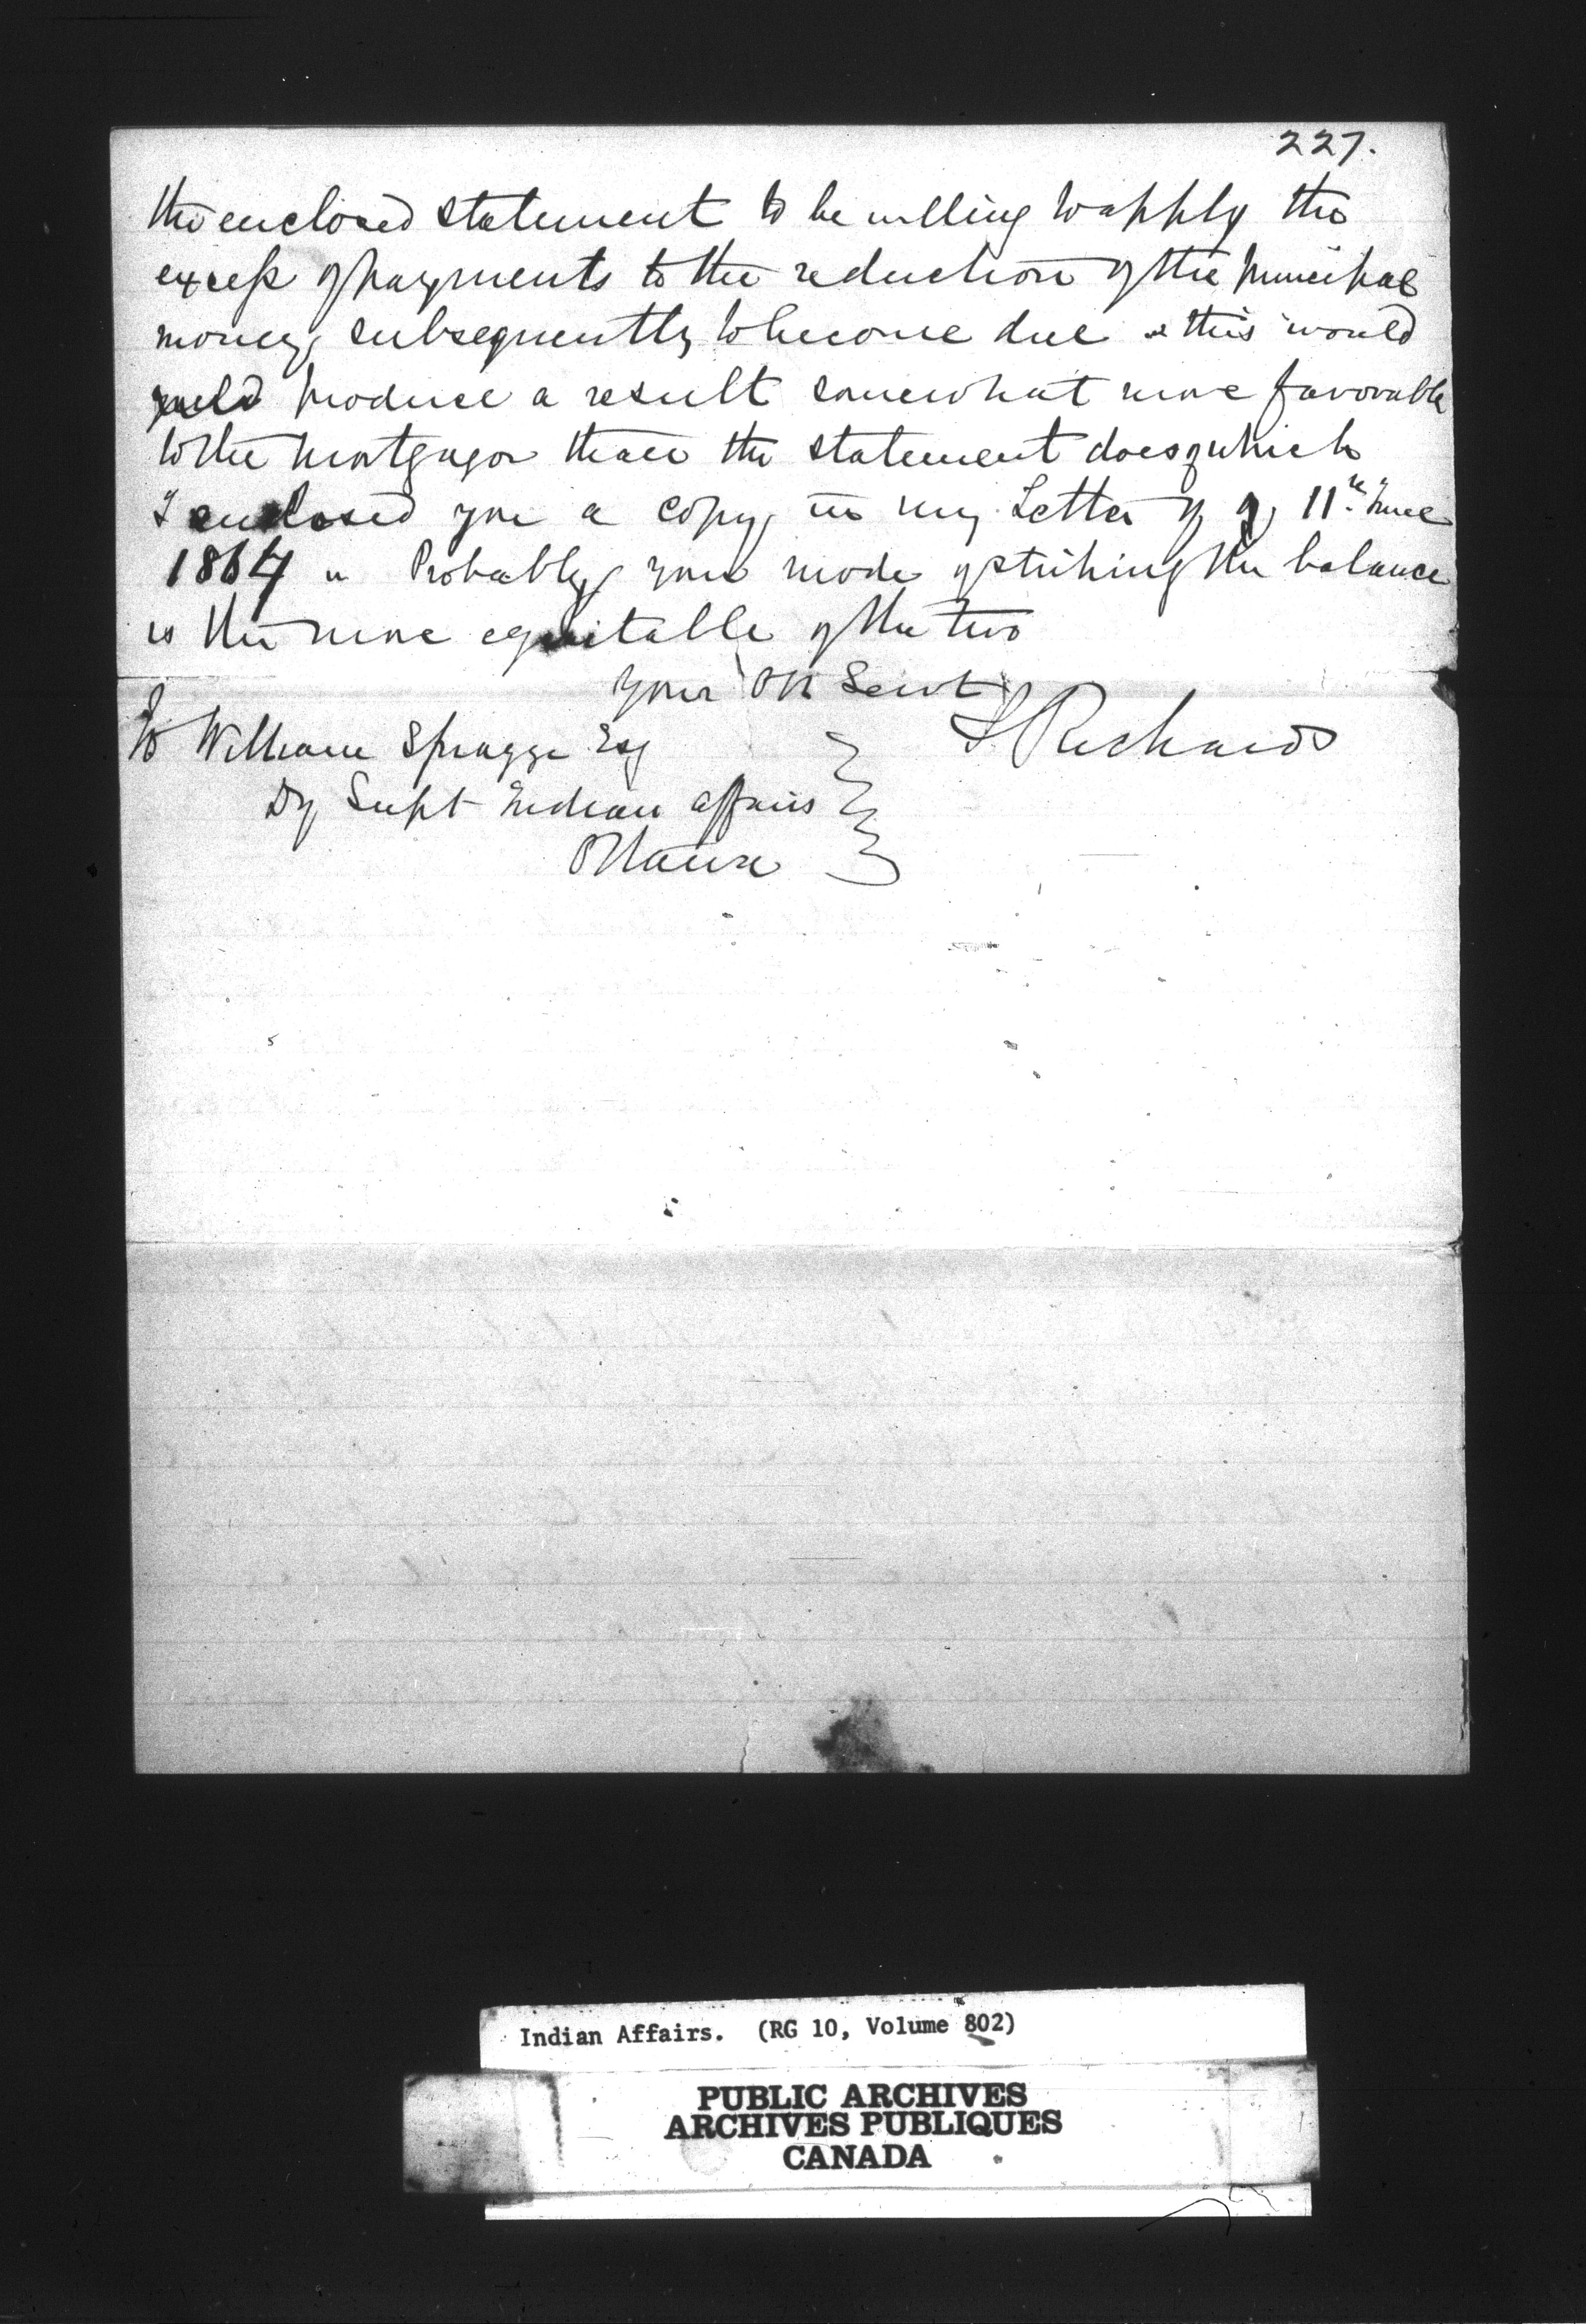 227.
the enclosed statement to be willing to apply the
excess of payments to the reduction of the principal
money, subsequently to become due & this would
yield produce a result somewhat more favorable
to the mortgagor than the statement does of which
I enclosed you a copy, in my Letter of 11th June
1864 Probably your mode of striking the balance
is the more equitable of the two
Your Ob Servt
S. Richards
To William Spragge Esq
Dy Supt Indian affairs
Ottawa
Indian Affairs. (RG 10, Volume 802)
PUBLIC ARCHIVES
ARCHIVES PUBLIQUES
CANADA